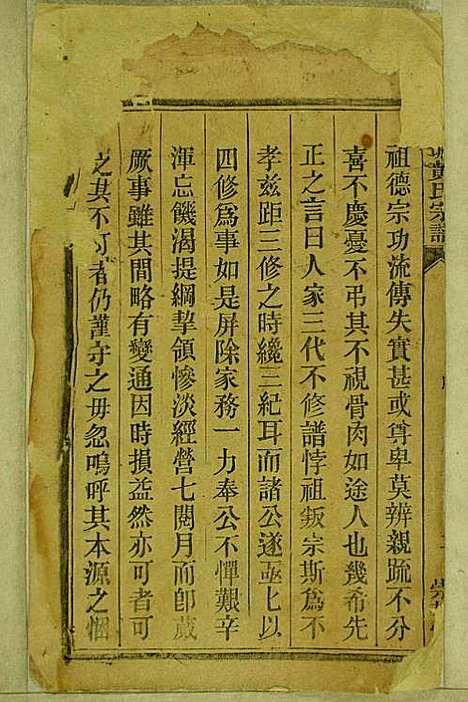 黃氏宗譜
祖德宗功流傳失實甚或尊卑莫辨親疏不分
喜不慶憂不弔其不視骨肉如途人也幾希先
正之言曰人家三代不修譜悖祖叛宗斯為不
孝兹距三修之時纔三紀耳而諸公遂亟亟以
四修為事如是屏除家務一力奉公不憚艱辛
渾忘饑渴提綱挈領慘淡經營七閱月而卽蕆
厥事雖其間略有變通因時損益然亦可者可
之其不可者仍謹守之毋忽嗚呼其本源之悃